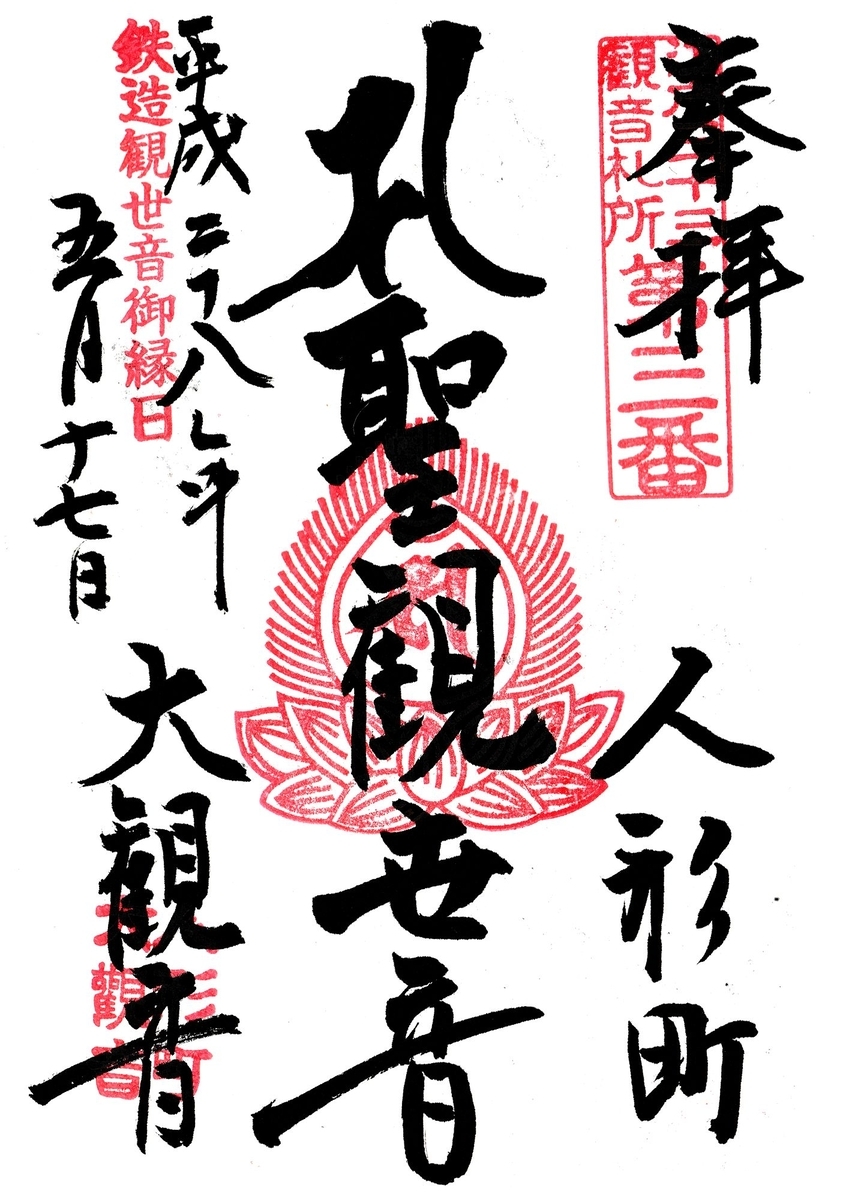 奉拝
観音札所
第三番
人形町
聖観世音
平成二十八年
鉄造観世音御縁日
五月十七日
大観音